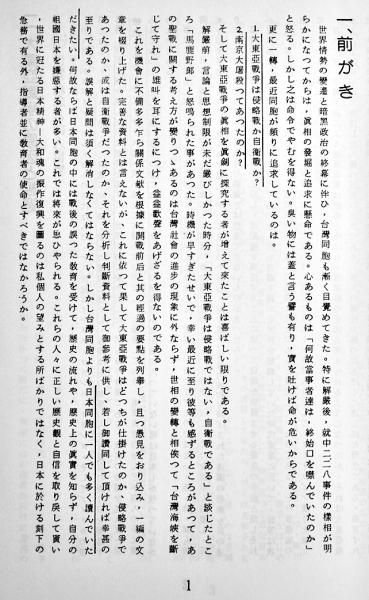 一、前がき
世界情勢の變遷と暗黑政治の終幕に伴ひ、台灣同胞も漸く目覺めてきた。特に解嚴後、就中二二八事件の樣相が明
らかになつてからは、眞相の發掘と追求に懸命である。心あるものは「何故當事者達は、終始口を噤んでいたのか」
と怒る。しかし之は命令でやむを得ない。臭い物には蓋と言う譬も有り、實を吐けば命が危いからである。
更に一轉、最近同胞が頻りに追求しているのは。
1.大東亞戰爭は侵略戰か自衛戰か？
2.南京大屠殺つてあつたのか？
そして大東亞戰爭の眞相を眞劍に探究する者が增えて來たことは喜ばしい限りである。
解嚴前、言論と思想制限が未だ嚴しかつた時分、「大東亞戰爭は侵略戰ではない、自衛戰である」と談じたとこ
ろ「馬鹿野郎」と怒鳴られた事があつた。時機が早すぎたせいで、幸い最近に至り彼等も感ずるところがあつて、あ
の聖戰に關する考え方が變りつゝあるのは台灣社會の進步の現象に外ならず、世相の變轉と相俟つて「台灣海峽を斷
じて守れ」の雄叫を耳にするにつけ、益益歡聲をあげざるを得ないのである。
これを機會に不備多多乍ら關係文献を根據に開戰前后と其の經過の要點を列擧し、且つ愚見をおり込み、一編の文
章を綴り上げた。完善な資料とは言えないが、これに依つて果して大東亞戰爭はどつちが仕掛けたのか、侵略戰爭で
あつたのか、或は自衛戰爭だつたのか、それを分析し判斷資料として御參考に供し、若し御讚同して頂ければ幸甚の
至りである。誤解と疑問は須く解消しなくてはならない。しかし台灣同胞よりも日本同胞に一人でも多く讀んでいた
だきたい。何故ならば日本同胞の中には戰後の誤つた教育を受けて、歷史の流れや、歷史上の眞實を知らず、自分の
祖國日本を嫌惡する者が多い。これでは將來が思ひやられる。これらの人々に正しい歷史觀と自信を取り戾して貰い
、世界に冠たる日本精神－大和魂の振作復興を圖るのは私個人の望みとする所ばかりではなく、日本に於ける刻下の
急務で有る外、指導者並に敎育者の使命とすべきではなかろうか。
1